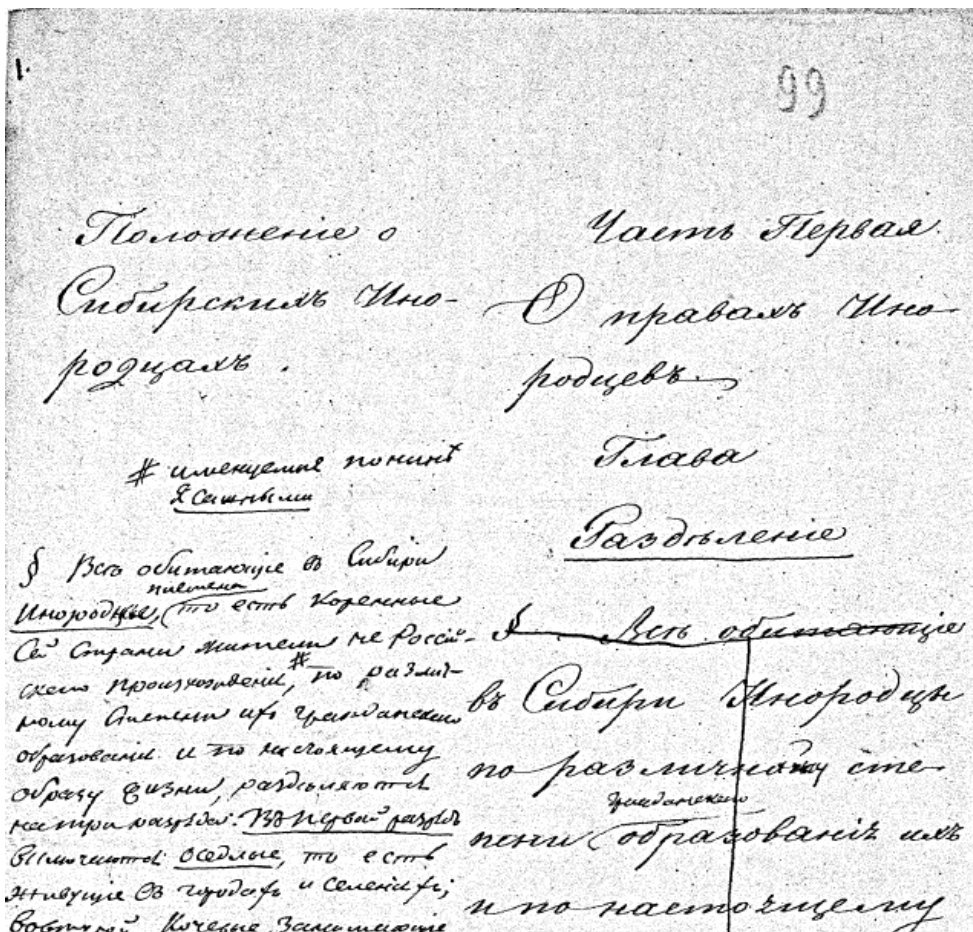 1.
99
Положеніе о
Сибирскихъ Ино-
родцахъ.
# именуемые понынѣ
Ясашными
§ Всѣ обитающіе въ Сибири
племена
Инородные, (то есть Коренные
Сей Страны жители не Россій-
скаго происхожденія, # по различ-
ному Степени ихъ гражданскаго
образованія и по настоящему
образу жизни, раздѣляются
на три разряда. Въ первый разрядъ
включаются Оседлые, то есть
живущіе въ городахъ и селеніяхъ;
во второй Кочевые Занимающіе
Часть Первая.
О правахъ Ино-
родцевъ.
Глава
Раздѣленіе
§ Всѣ обитающіе
въ Сибири Инородцы
по различному сте-
гражданскаго
пени (образованія ихъ
и по настоящему